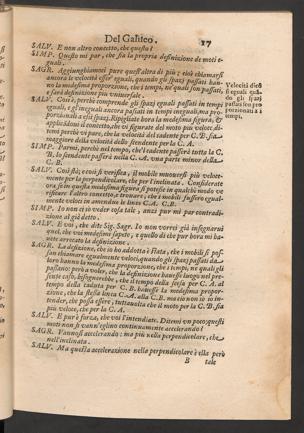 Del Galileo. 17
SALV. E non altro concetto, che questo?
SIMP. Questo mi par, che sia la propria definizione de moti e-
guali.
SAGR. Aggiunghiamoci pure quest'altra di più; cioè chiamarsi
ancora le velocità esser'eguali, quando gli spazj passati han-
no la medesima proporzione, che i tempi, ne' quali son passati,
e sarà definizione più vniuersale.
Velocità dico
si eguali quã-
do gli spazj
passati son pro
porzionati a
i tempi.
SALV. Così è, perchè comprende gli spazj eguali passati in tempi
eguali, e gl'ineguali ancora passati in tempi ineguali, ma pro-
porzionali a essi spazj. Ripigliate hora la medesima figura, &
applicãdoui il concetto, che vi figurate del moto piu veloce, di-
temi perchè vi pare, che la velocità del cadente per C.B. sia
maggiore della velocità dello scendente per la C. A.
SIMP. Parmi, perchè nel tempo, che'l cadente passerà tutta la C.
B. lo scendente passerà nella C. A. vna parte minor della
C. B.
SALV. Così stà; e così si verifica, il mobile muouersi più veloce-
mente per la perpendicolare, che per l'inclinata. Considerate
ora se in questa medesima figura si potesse in qualche modo ve
rificare l'altro concetto, e trouare, che i mobili fussero egual-
mente veloci in amendue le linee C.A. C.B.
SIMP. Io non ci sò veder cosa tale, anzi pur mi par contradi-
zione al già detto.
SALV. E voi, che dite Sig. Sagr. Io non vorrei già insegnarui
quel, che voi medesimi sapete, e quello di che pur hora mi ha-
uete arrecato la definizione.
SAGR. La definizione, che io ho addotta è stata, che i mobili si pos-
san chiamare egualmente veloci, quando gli spazj passati da
loro hanno la medesima proporzione, che i tempi, ne quali gli
passano: però a voler, che la definizione hauesse luogo nel pre-
sente caso, bisognerebbe, che il tempo della scesa per C.A. al
tempo della caduta per C.B. hauesse la medesima propor-
zione, che la stessa linea C.A. alla C.B. ma ciò non sò io in-
tender, che possa essere, tuttauolta che il moto per la C.B. sia
più veloce, che per la C. A.
SALV. E pur è forza, che voi l'intendiate. Ditemi vn poco; questi
moti non si vann'eglino continuamente accelerando?
SAGR. Vannosi accelerando: ma più nella perpendicolare, che
nell'inclinata.
SALV. Ma questa accelerazione nella perpendicolare è ella però
B tale